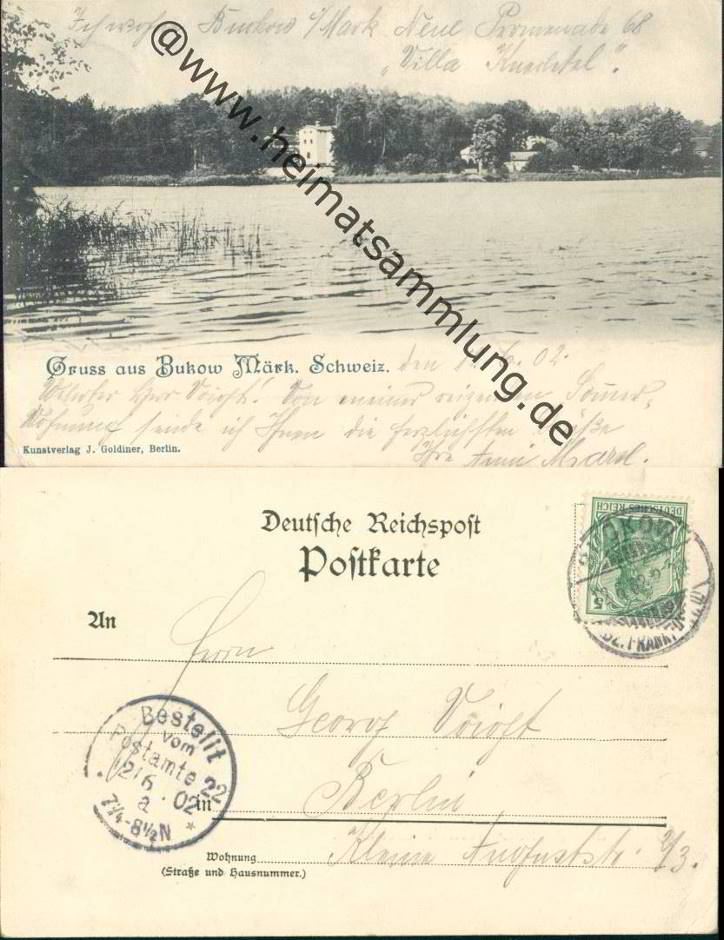 Ich wohne Buckow i/Mark Neue Promenade 68
"Villa
@www.heimatsammlung.de
Gruss aus Bukow Märk. Schweiz. den 12.6.02.
Werter Herr Voigt! Von meiner reizenden Sommer-
Wohnung sende ich Ihnen die herzlichsten Grüße
Kunstverlag J. Goldiner, Berlin.
Ihre Anni
Deutsche Reichspost
Postkarte
DEUTSCHES REICH
5
BUCKOW
BZ. FRANKF.
An Herrn
Georg Voigt
Bestellt
vom
Postamte 22
12/6 02
a
7¼-8½N
in Berlin
Wohnung Kleine Auguststr. 2/3.
(Straße und Hausnummer.)